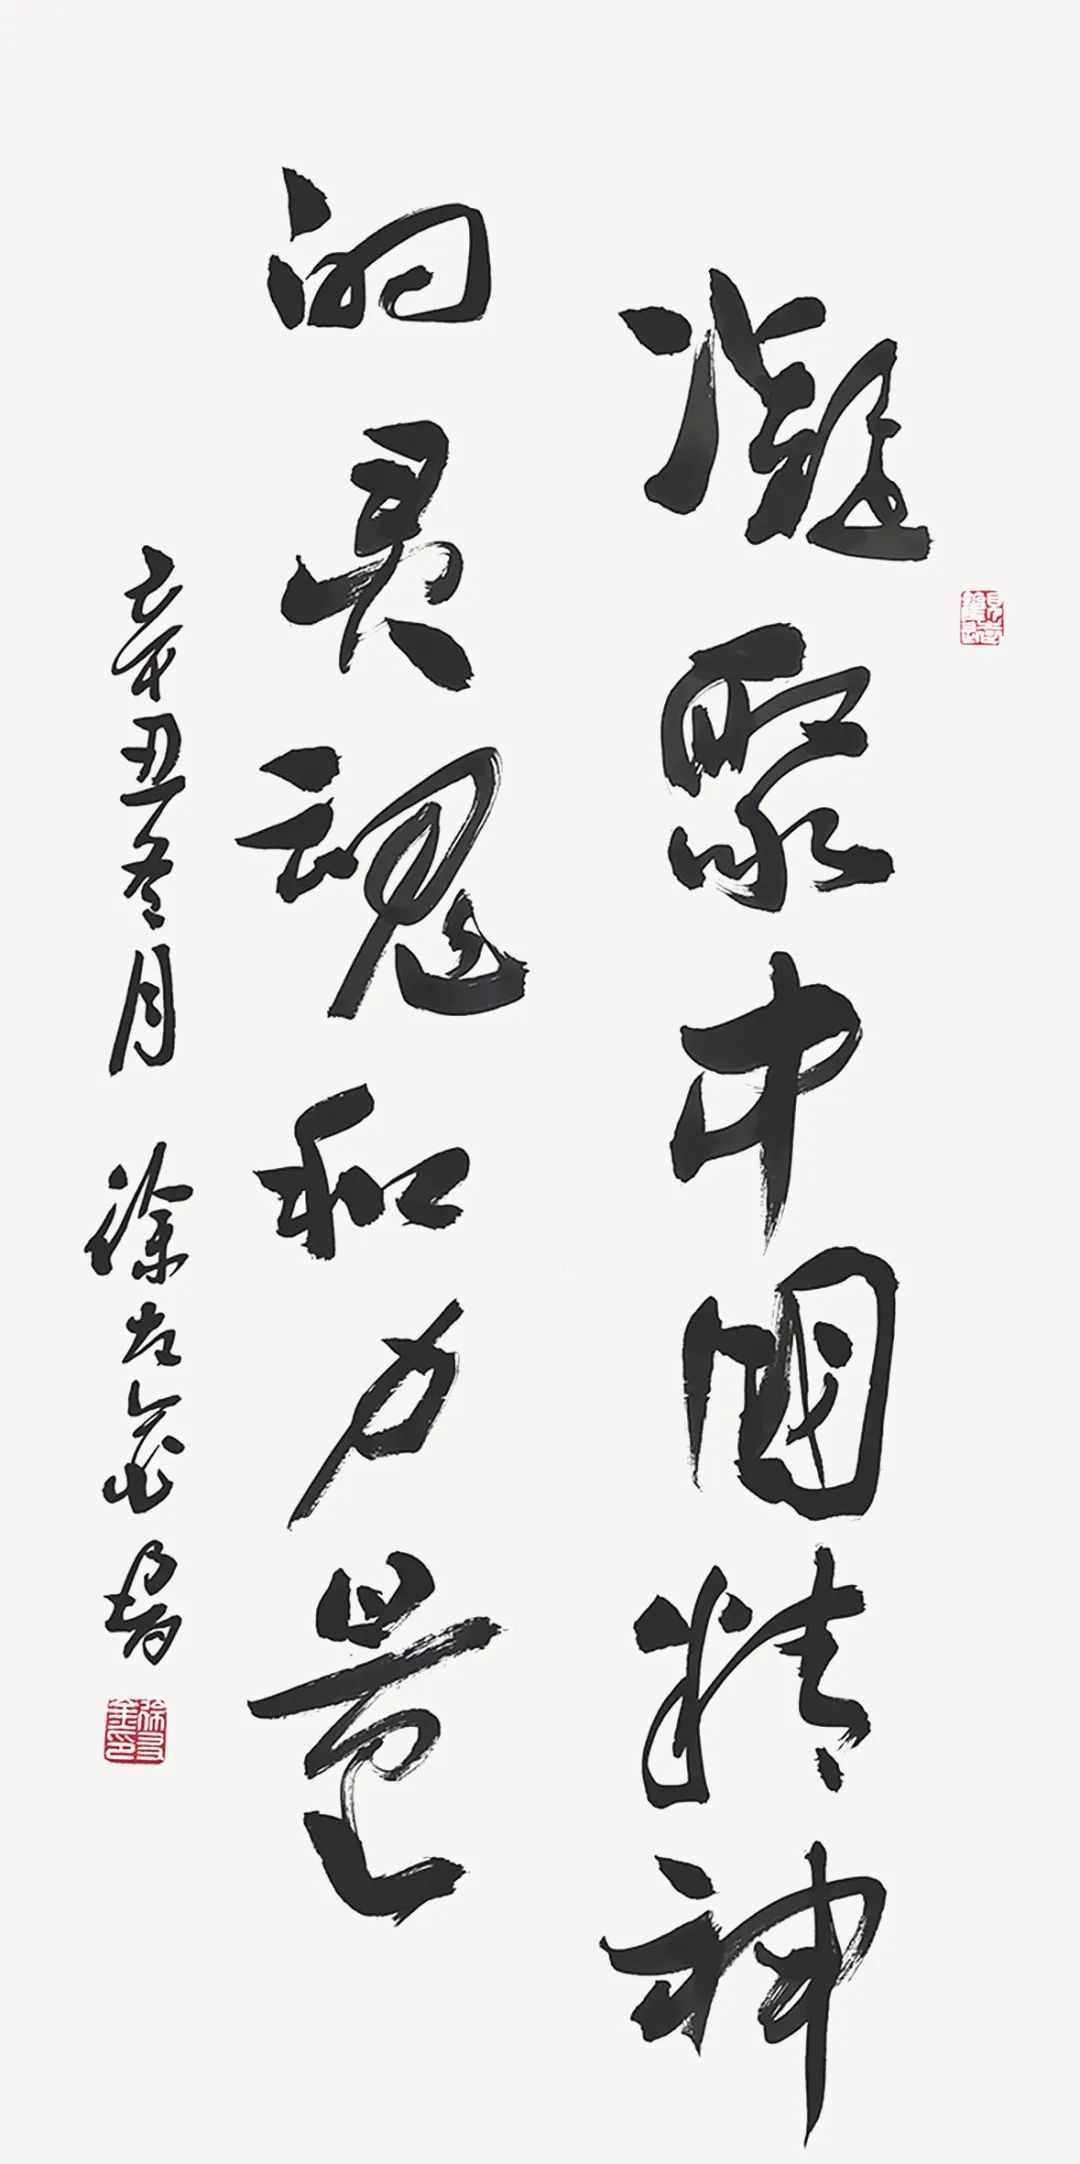 凝聚中国精神
的灵魂和力量
辛丑冬月 徐 金书